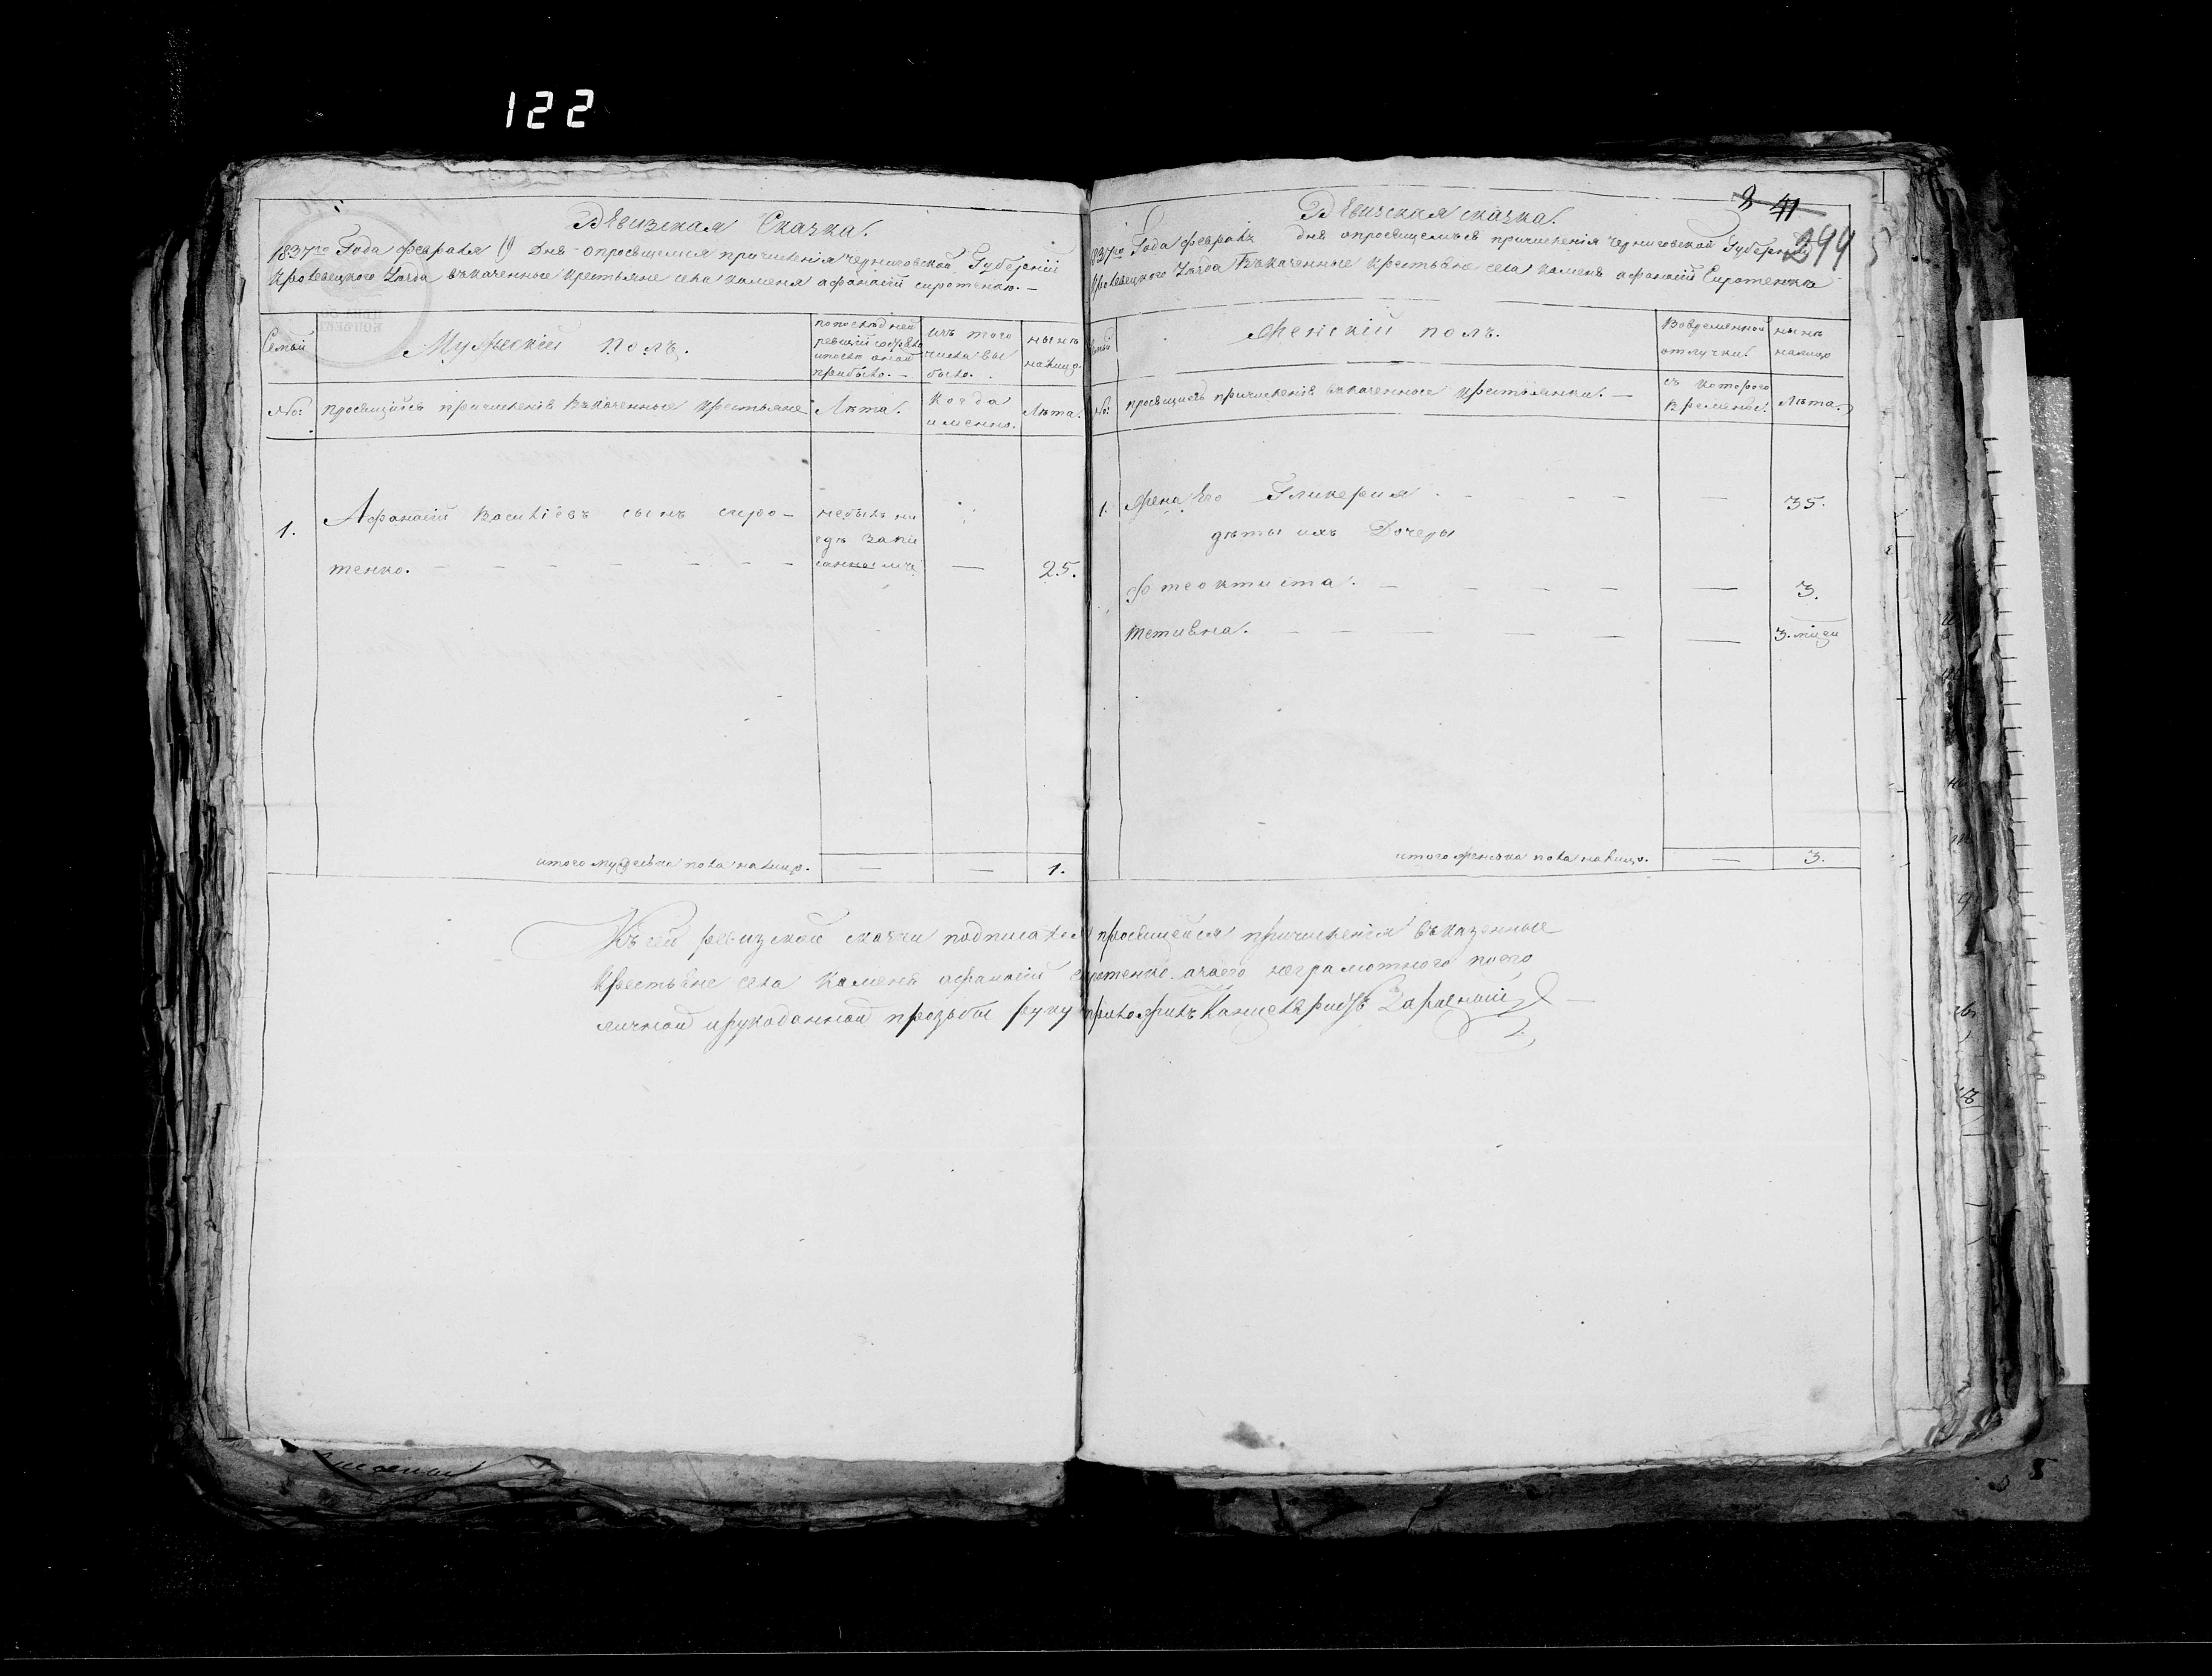 122
Ревизская Сказка.
1837го Года февраля 19 дня о просящемся причисленія Черниговской Губерніи
Кролевецкого Уезда въ казенные крестьяне села Каменя афанасій сиротенко.—
Семьи
Мужескій полъ.
по последней ревизіи состояло и после оной прибыло.
изъ того числа выбыло.
ныне налицо.
№:
просящійсь причисленія въ казенные крестьяне
Лета.
когда именно.
Лета.
1.
Афанасій Василіевъ сынъ сиро-
тенко. — — — — — —
небылъ ни
где запи
санным
—
25.
итого мужеска пола налицо.
—
—
1.
8 41
244
Ревизская сказка.
1837го Года февраля дня о просящемься причисленія Черниговской Губерніи
Кролевецкого Уезда въ казенные крестьяне села Каменя афанасій Сиротенко
Семьи
Женскій полъ.
Вовременной отлучки.
ныне налицо
№:
просящиесь причисленія въ казенные крестьянки.—
съ которого времены.
Лета.
1.
Жена Его Гликерия . — — — —
—
35.
деты ихъ Дочеры
Фтеоктиста. — — — —
—
3.
Тетиена. — — — — — —
—
3. меси
итого женска пола налицо.
—
3.
Къ сей ревизской сказки подписался просящейся причисленія въ казенные
крестьяне села Каменя афанасій сиротенко. а ваего неграмотного по его
личной ирукоданной прозьбы руку приложилъ Канцеляристъ
5